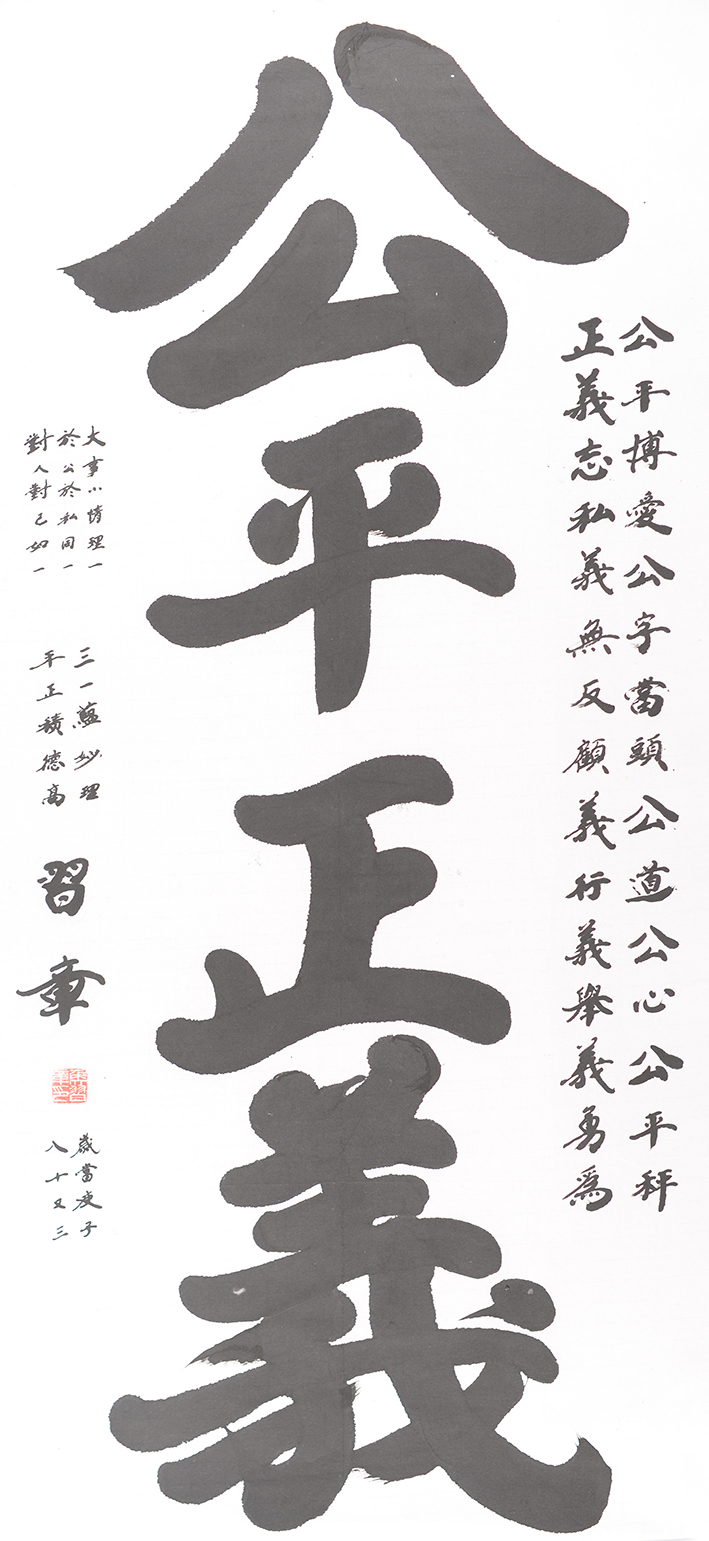 公平正義
公平博愛公字當頭公道公心公平秤
正義忘私義無反顧義行義舉義勇為
大事小情理一
於公於私同一
對人對己如一
三一蘊妙理
平正積德高
習章
歲當庚子
八十又三